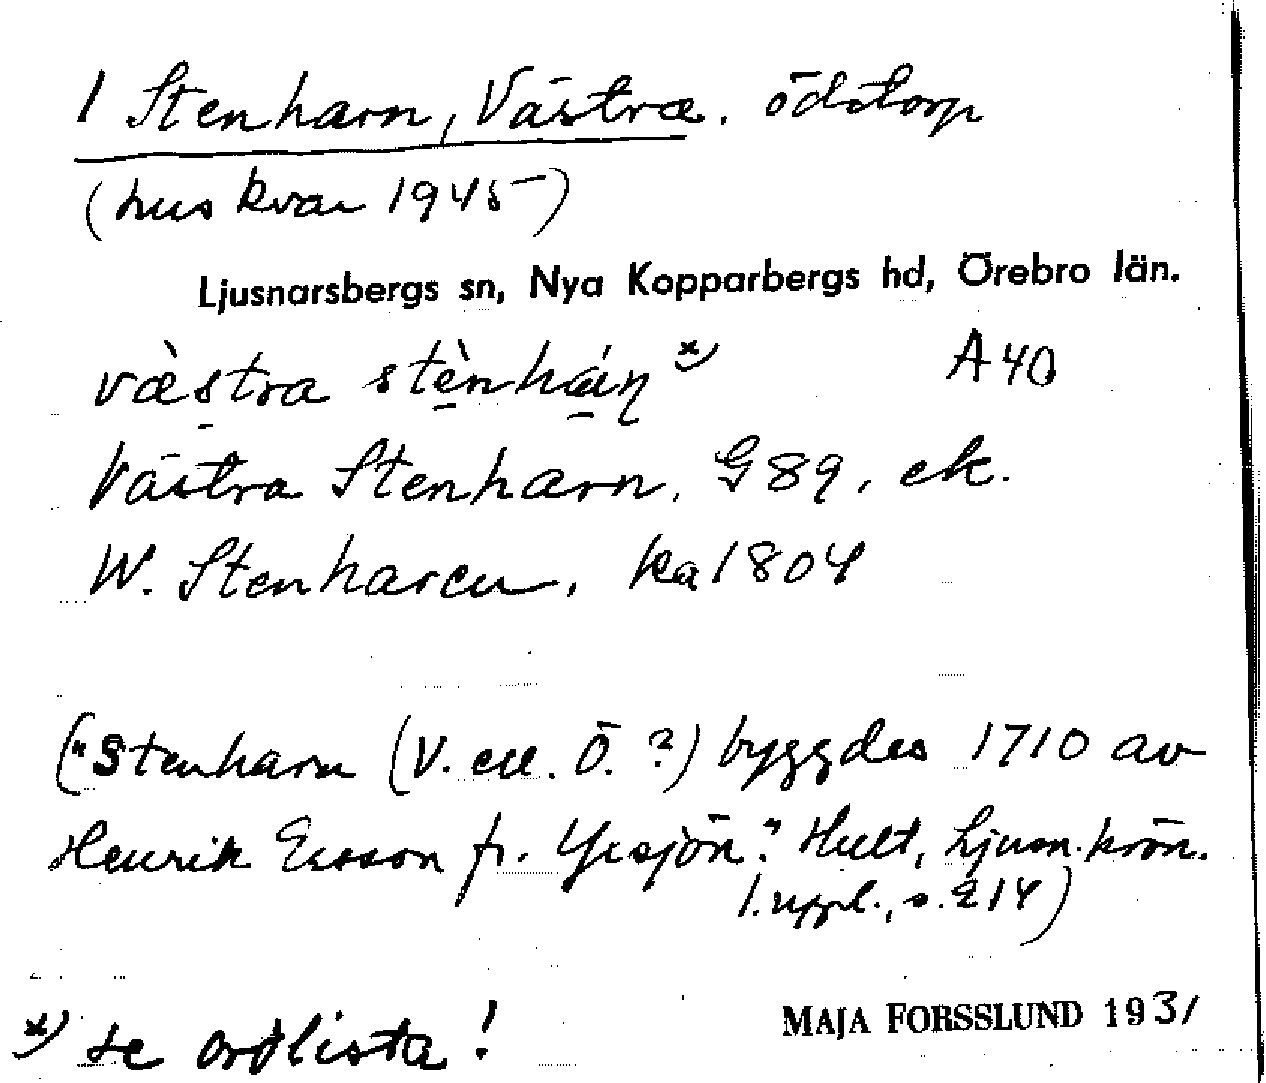 1 Stenharn, Västra. ödetorp
(hus kvar 1945)
Ljusnarsbergs sn, Nya Kopparbergs hd, Örebro län.
væ̀stra stènháɳ *)
A 40
Västra Stenharn, G 89, ek.
W. Stenharen, ka 1804
("Stenharn (V. ell. Ö. ?) byggdes 1710 av
Henrik Ersson fr. Yxsjön." Hult, Ljusn. krön.
1. uppl., s. 214)
*) se ordlista!
MAJA FORSSLUND 1931